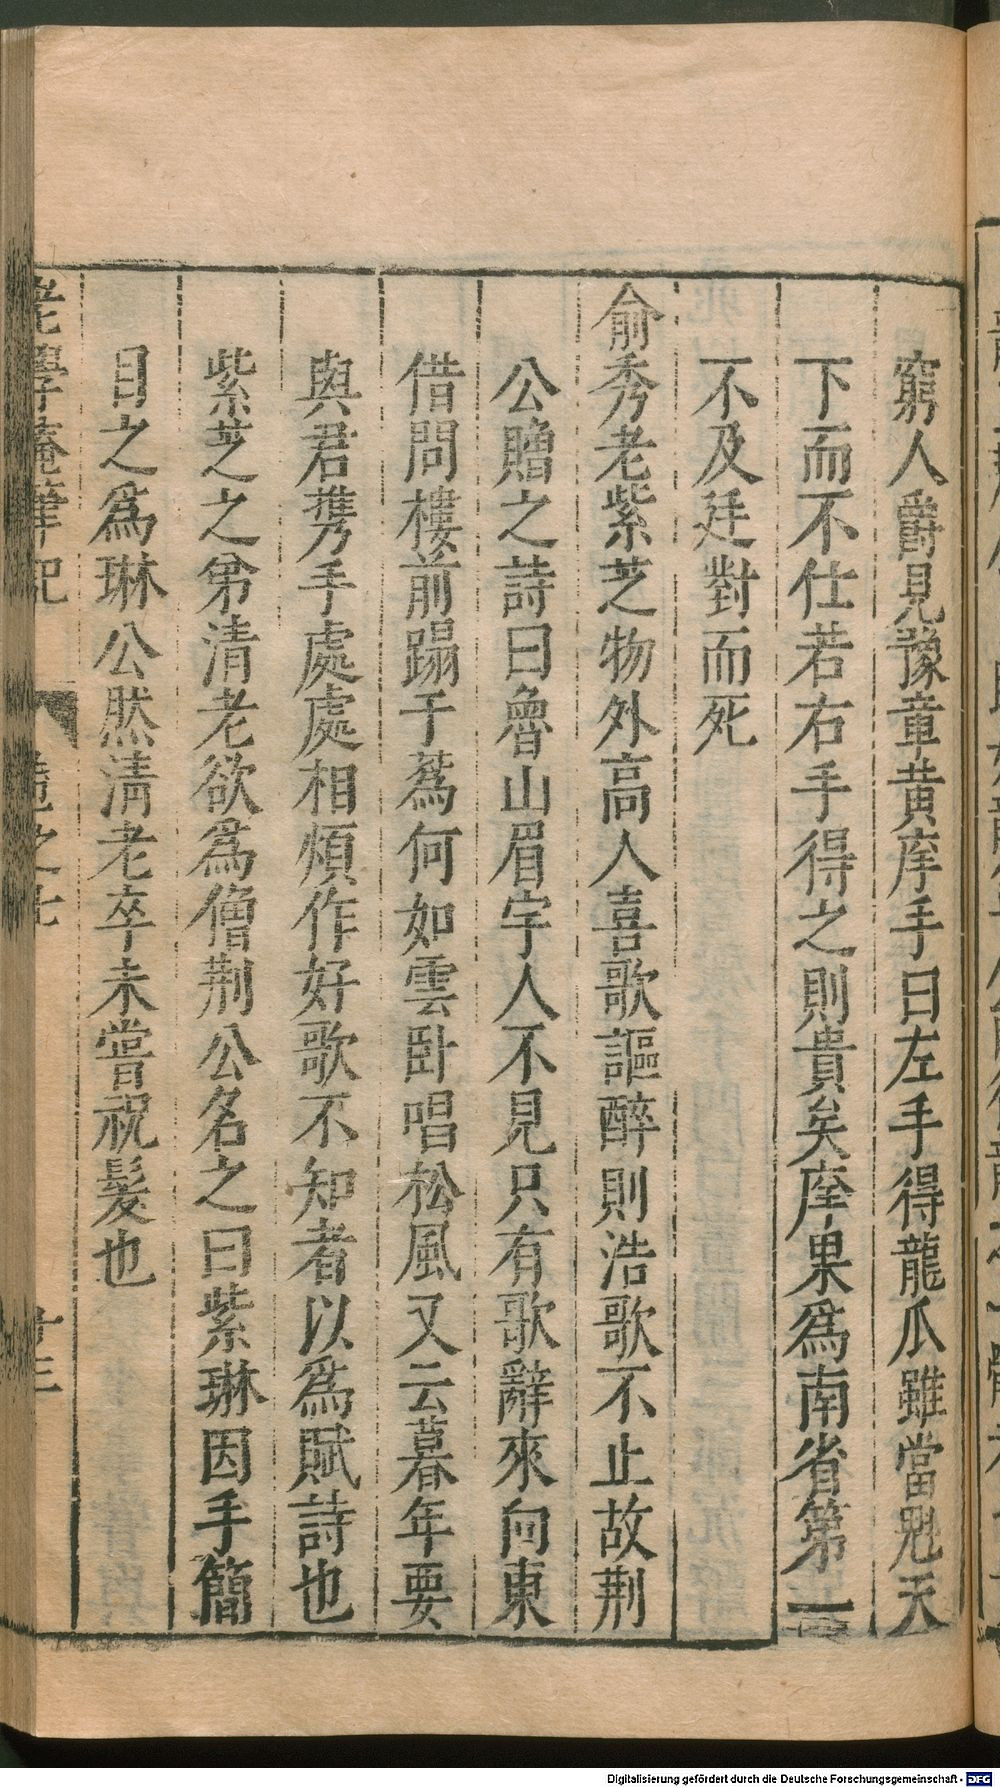 窮人爵見豫章黄庠手曰左手得龍爪雖當魁天
下而不仕若右手得之則貴矣庠果爲南省第一
不及廷對而死
俞秀老紫芝物外高人喜歌謳醉則浩歌不止故荆
公贈之詩曰魯山眉宇人不見只有歌辭來向東
借問樓前蹋于蔿何如雲卧唱松風又云暮年要
與君携手處處相煩作好歌不知者以爲賦詩也
紫芝之弟清老欲爲僧荆公名之曰紫琳因手簡
目之爲琳公然清老卒未嘗祝髮也
老學庵筆記 卷之七 廿三
Digitalisierung gefördert durch die Deutsche Forschungsgemeinschaft - DFG